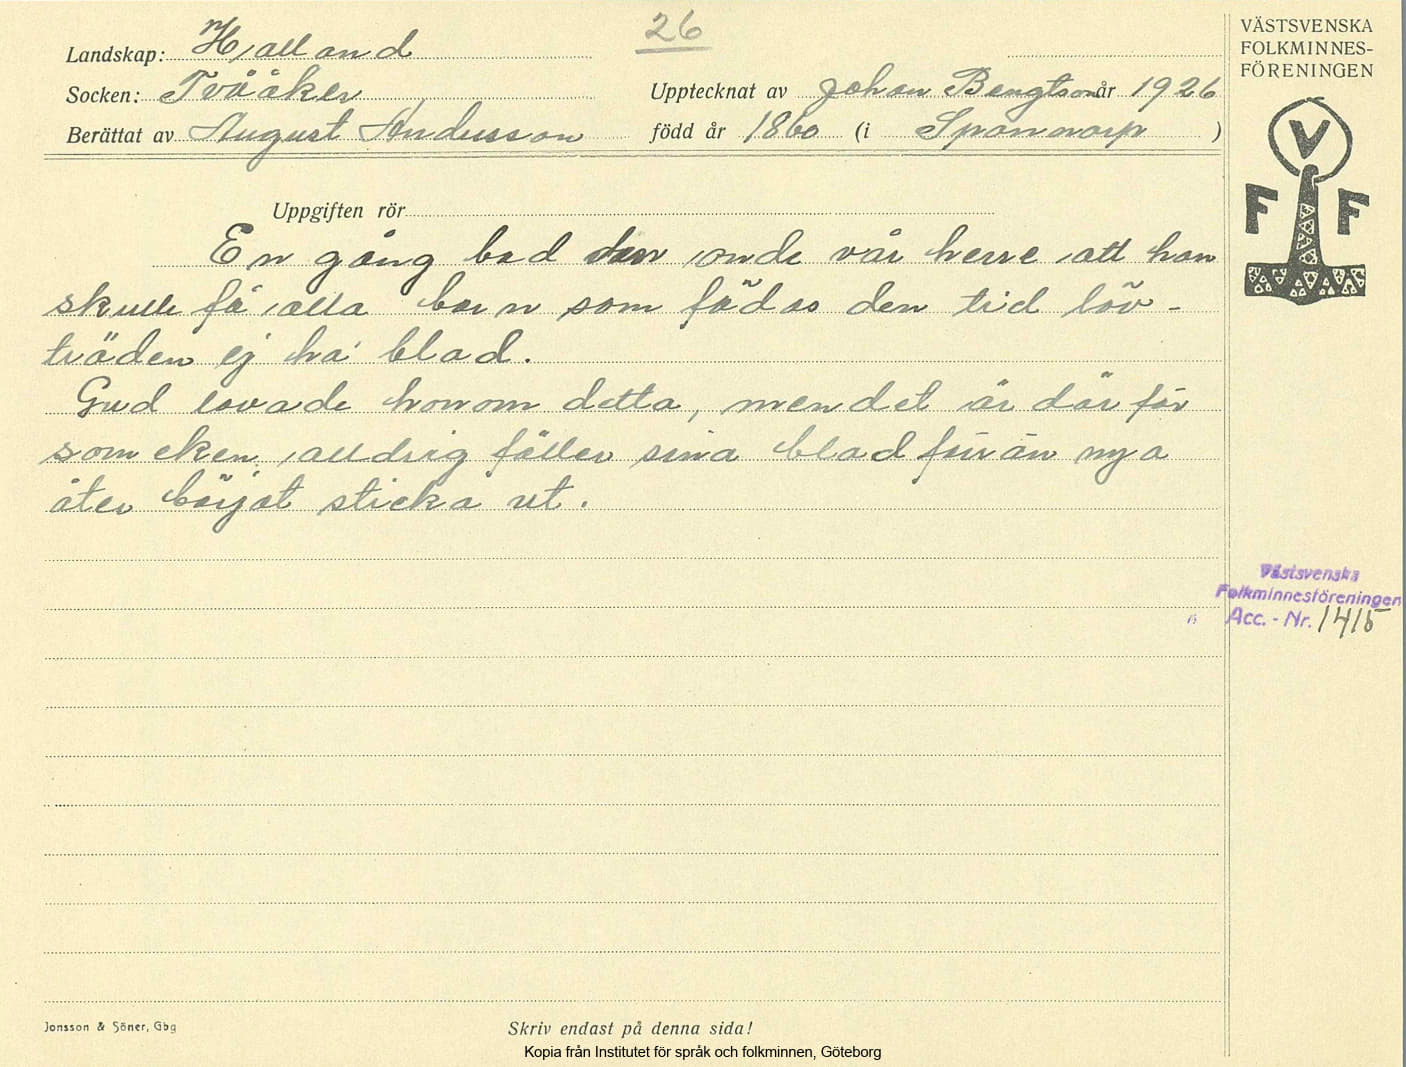 26
VÄSTSVENSKA
FOLKMINNES-
FÖRENINGEN
Landskap: Halland
Socken: Tvååker
Upptecknat av Johan Bengtson år 1926
Berättat av August Andersson
född år 1860 (i Spannarp )
V
F F
Uppgiften rör
En gång bad den onde vår herre att han
skulle få alla barn som födas den tid löv-
träden ej ha blad.
Gud lovade honom detta, men det är där för
som eken alldrig fäller sina blad förrän nya
åter börjat sticka ut.
Västsvenska
Folkminnesföreningen
Acc. - Nr. 1415
Jonsson & Söner, Gbg
Skriv endast på denna sida!
Kopia från Institutet för språk och folkminnen, Göteborg